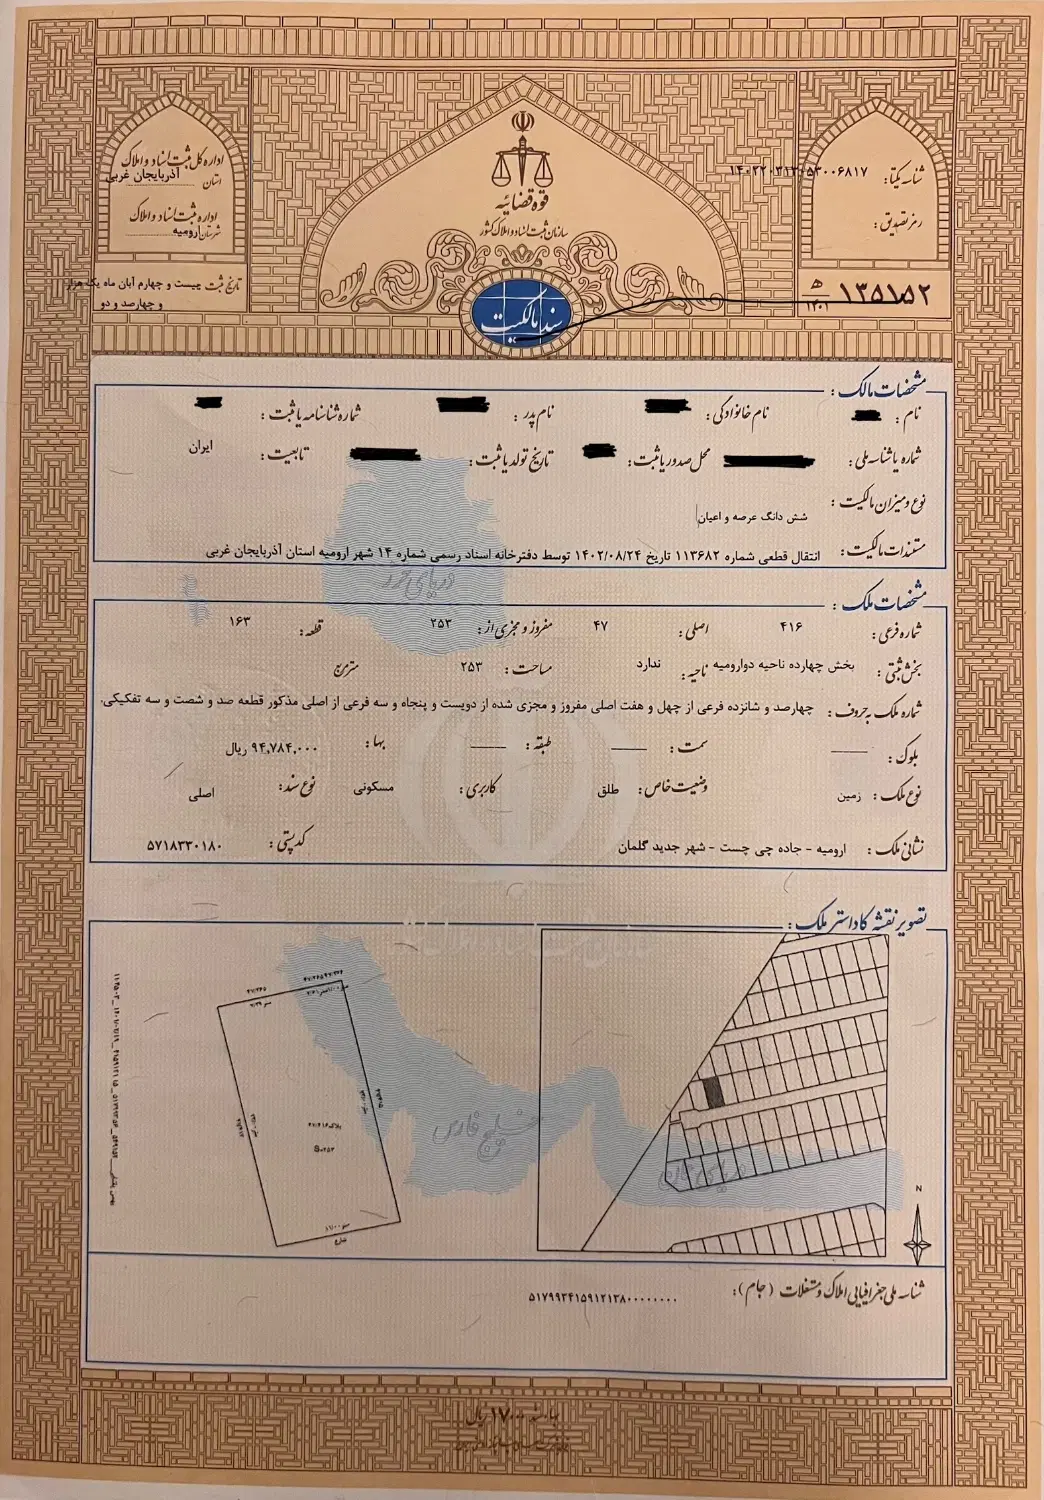 اداره کل ثبت اسناد و املاک
استان آذربایجان غربی
اداره ثبت اسناد و املاک
شهرستان ارومیه
تاریخ ثبت بیست و چهارم آبان ماه یک هزار
و چهارصد و دو
قوه قضائیه
سازمان ثبت اسناد و املاک کشور
سند مالکیت
شناسه یکتا:
رمز تصدیق:
۱۴۰۱
مشخصات مالک:
نام: نام خانوادگی: نام پدر: شماره شناسنامه یا ثبت:
شماره یا شناسه ملی: محل صدور یا ثبت: تاریخ تولد یا ثبت: تابعیت: ایران
نوع و میزان مالکیت: شش دانگ عرصه و اعیان
مستندات مالکیت: انتقال قطعی شماره ۱۱۳۶۸۲ تاریخ ۱۴۰۲/۰۸/۲۴ توسط دفترخانه اسناد رسمی شماره ۱۴ شهر ارومیه استان آذربایجان غربی
دریای خزر
مشخصات ملک:
شماره فرعی: ۴۱۶ اصلی: ۴۷ مفروز و مجزی از: ۲۵۳ قطعه: ۱۶۳
بخش ثبتی: بخش چهارده ناحیه دوارومیه ناحیه: ندارد مساحت: ۲۵۳ مترمربع
شماره ملک به حروف: چهارصد و شانزده فرعی از چهل و هفت اصلی مفروز و مجزی شده از دویست و پنجاه و سه فرعی از اصلی مذکور قطعه صد و شصت و سه تفکیکی.
بلوک: سمت: طبقه: بها: ۹۴,۷۸۴,۰۰۰ ریال
نوع ملک: زمین وضعیت خاص: طلق کاربری: مسکونی نوع سند: اصلی
نشانی ملک: ارومیه - جاده چی چست - شهر جدید گلمان کد پستی: ۵۷۱۸۳۳۰۱۸۰
تصویر نقشه کاداستر ملک:
پلاک ۴۷/۴۱۶
S=۲۵۳
شارع
خلیج فارس
دریای عمان
N
شناسه ملی جغرافیایی املاک و مستغلات (جام): ۵۱۷۹۹۳۴۱۵۹۱۲۱۳۸۰۰۰۰۰۰۰۰